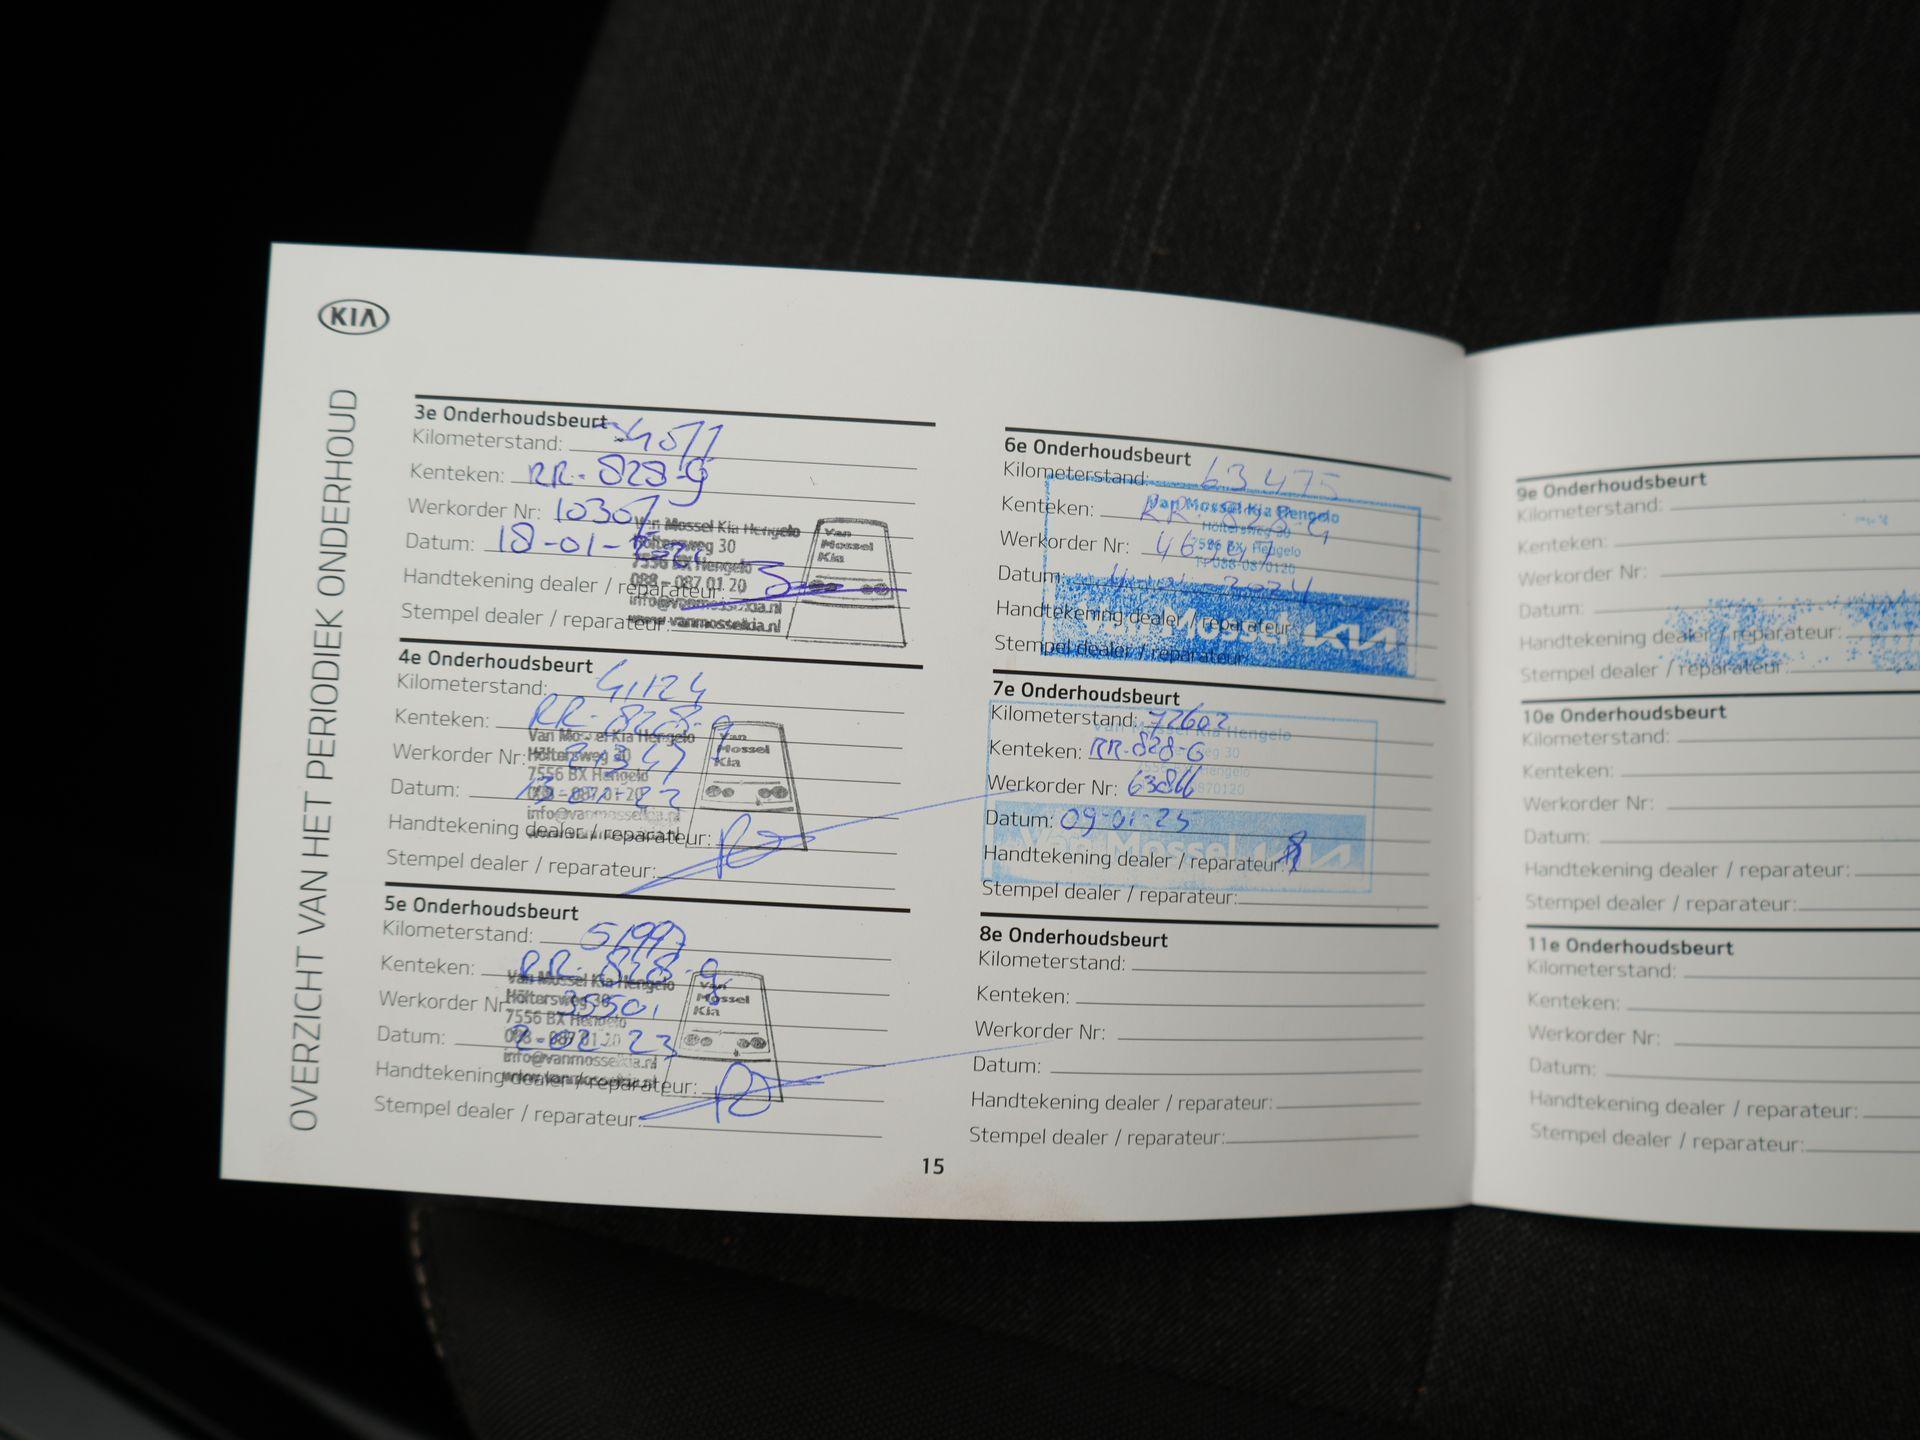 KIA
OVERZICHT VAN HET PERIODIEK ONDERHOUD
3e Onderhoudsbeurt
Kilometerstand: 34077
Kenteken: RR-828-g
Werkorder Nr: 10307
Datum: 18-01-
Handtekening dealer / reparateur:
Stempel dealer / reparateur:
Van Mossel Kia Hengelo
Höltersweg 30
7556 BX Hengelo
088 - 087 01 20
info@vanmosselkia.nl
www.vanmosselkia.nl
Van
Mossel
Kia
4e Onderhoudsbeurt
Kilometerstand: 41124
Kenteken: RR-828-g
Werkorder Nr:
Datum:
Handtekening dealer / reparateur:
Stempel dealer / reparateur:
Van Mossel Kia Hengelo
Höltersweg 30
7556 BX Hengelo
088 - 087 01 20
info@vanmosselkia.nl
Van
Mossel
Kia
5e Onderhoudsbeurt
Kilometerstand: 51997
Kenteken: RR-828-g
Werkorder Nr: 35501
Datum: 2-02-23
Handtekening dealer / reparateur:
Stempel dealer / reparateur:
Van Mossel Kia Hengelo
Höltersweg 30
7556 BX Hengelo
088 - 087 01 20
info@vanmosselkia.nl
www.vanmosselkia.nl
Van
Mossel
Kia
6e Onderhoudsbeurt
Kilometerstand: 63475
Kenteken: RR-828-G
Werkorder Nr:
Datum: 2024
Handtekening dealer / reparateur:
Stempel dealer / reparateur:
Van Mossel Kia Hengelo
Höltersweg 30
7556 BX Hengelo
088-0870120
Van Mossel KIA
7e Onderhoudsbeurt
Kilometerstand: 72602
Kenteken: RR-828-G
Werkorder Nr:
Datum: 09-01-25
Handtekening dealer / reparateur:
Stempel dealer / reparateur:
Van Mossel Kia Hengelo
Van Mossel KIA
8e Onderhoudsbeurt
Kilometerstand:
Kenteken:
Werkorder Nr:
Datum:
Handtekening dealer / reparateur:
Stempel dealer / reparateur:
15
9e Onderhoudsbeurt
Kilometerstand:
Kenteken:
Werkorder Nr:
Datum:
Handtekening dealer / reparateur:
Stempel dealer / reparateur:
10e Onderhoudsbeurt
Kilometerstand:
Kenteken:
Werkorder Nr:
Datum:
Handtekening dealer / reparateur:
Stempel dealer / reparateur:
11e Onderhoudsbeurt
Kilometerstand:
Kenteken:
Werkorder Nr:
Datum:
Handtekening dealer / reparateur:
Stempel dealer / reparateur: